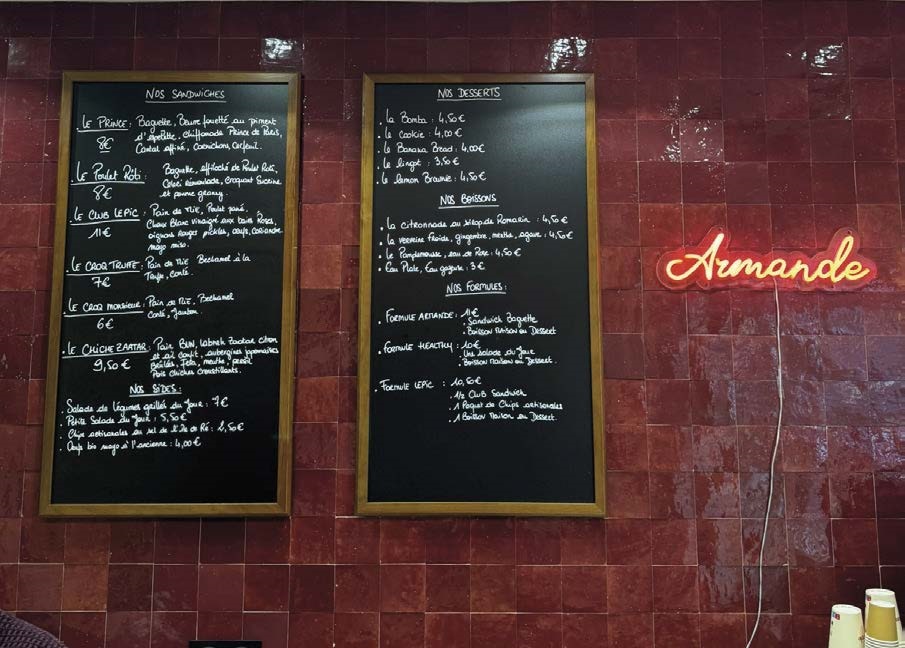 NOS SANDWICHES
. LE PRINCE: Baguette, Beurre fouetté au piment
d'espelette. Chiffonnade Prince de Paris,
8€
Cantal affiné, Cornichons, Cerfeuil.
. LE Poulet Rôti: Baguette, effiloché de Poulet Rôti,
8€
Céleri Rémoulade, Croquant Sucrine
et pomme granny.
. LE CLUB LEPIC: Pain de Mie, Poulet pané,
11€
Choux Blanc Vinaigré aux baies Roses,
oignons Rouges pickles, oeufs, Coriandre
mayo miso.
. LE CROQ'TRUFFE: Pain de Mie Bechamel à la
7€
Truffe, Conté.
. LE CROQ MONSIEUR: Pain de Mie, Bechamel
6€
Conté, Jambon.
. LE CHICHE ZAATAR: Pain BUN, labneh Zaatar citron
9,50€
et ail Confit, aubergines japonaises
Brûlés, Feta, menthe, persil
Pois Chiches Croustillants.
NOS SIDES:
. Salade de légumes grillés du Jour: 7€
. Petite Salade du Jour: 5,50€
. Chips artisanales au sel de l'île de Ré: 2,50€
. Oeufs bio mayo à l'ancienne: 4,00€
NOS DESSERTS
. La Bomba: 4,50€
. Le Cookie: 4,00€
. Le Banana Bread: 4,00€
. Le lingot: 3,50€
. Le Lemon Brownie: 4,50€
NOS BOISSONS
. La Citronnade au sirop de Romarin: 4,50€
. La verveine froide, gingembre, menthe, agave: 4,50€
. Le Pamplemousse, eau de Rose: 4,50€
. Eau Plate, Eau gazeuse: 3€
NOS FORMULES:
. FORMULE ARMANDE: 11€
. Sandwich Baguette
. Boisson Maison ou Dessert
. FORMULE HEALTHY: 10€
. Une Salade du Jour
. Boisson Maison ou Dessert.
. FORMULE LEPIC: 10,50€
. 1/2 Club Sandwich
. 1 Paquet de Chips artisanales
. 1 Boisson Maison ou Dessert.
Armande